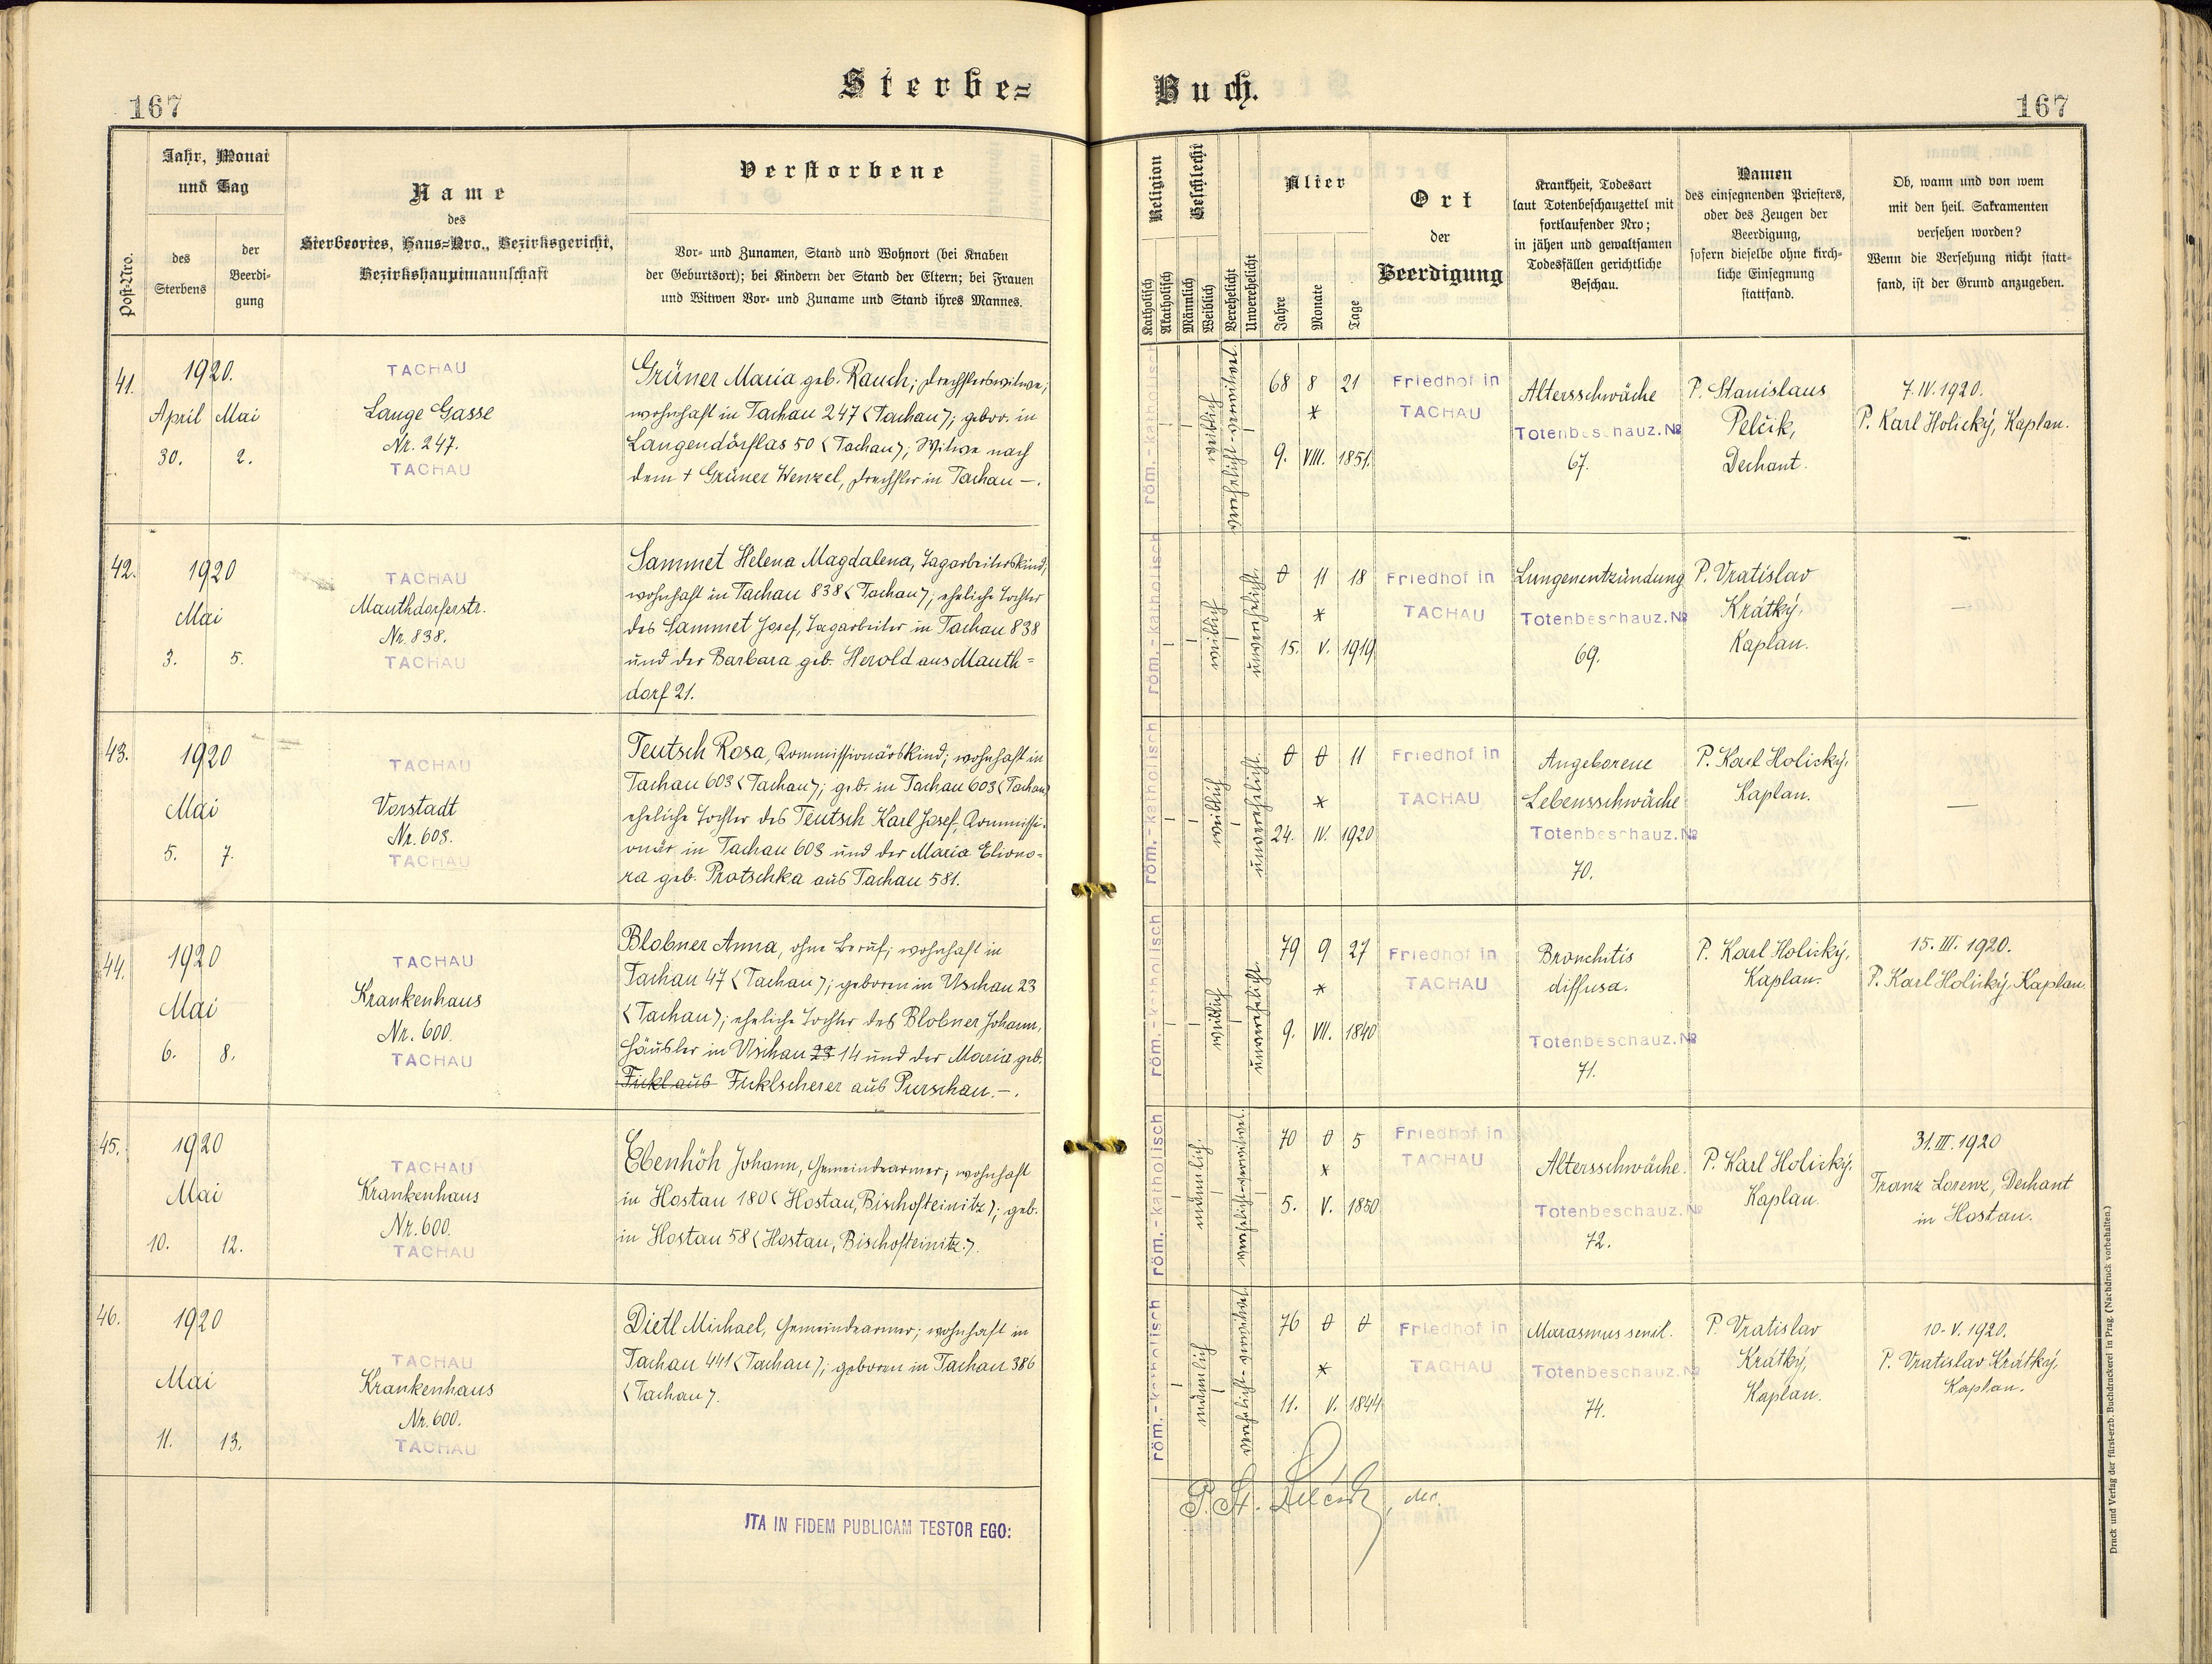 167
Sterbe=
Buch.
167
Post-Nro.
Jahr, Monat
und Tag
des
Sterbens
der
Beerdi-
gung
Name
des
Sterbeortes, Haus=Nro., Bezirksgericht,
Bezirkshauptmannschaft
Verstorbene
Vor- und Zunamen, Stand und Wohnort (bei Knaben
der Geburtsort); bei Kindern der Stand der Eltern; bei Frauen
und Witwen Vor- und Zuname und Stand ihres Mannes.
Religion
Katholisch
Akatholisch
Geschlecht
Männlich
Weiblich
Verehelicht
Unverehelicht
Alter
Jahre
Monate
Tage
Ort
der
Beerdigung
Krankheit, Todesart
laut Totenbeschauzettel mit
fortlaufender Nro;
in jähen und gewaltsamen
Todesfällen gerichtliche
Beschau.
Namen
des einsegnenden Priesters,
oder des Zeugen der
Beerdigung,
sofern dieselbe ohne kirch-
liche Einsegnung
stattfand.
Ob, wann und von wem
mit den heil. Sakramenten
versehen worden?
Wenn die Versehung nicht statt-
fand, ist der Grund anzugeben.
41.
1920.
April Mai
30. 2.
TACHAU
Lange Gasse
Nr. 247.
TACHAU
Grüner Maria geb. Rauch; Drechslerswitwe;
wohnhaft in Tachau 247 (Tachau); gebor. in
Langendörflas 50 (Tachau); Witwe nach
dem † Grüner Wenzel, Drechsler in Tachau —.
röm.-katholisch
weiblich
verehelicht-verwitwet.
68 8 21
*
9. VIII. 1851.
Friedhof in
TACHAU
Altersschwäche
Totenbeschauz.No
67.
P. Stanislaus
Pelčik,
Dechant.
7. IV. 1920.
P. Karl Holický, Kaplan.
42.
1920
Mai
3. 5.
TACHAU
Mauthdorferstr.
Nr. 838.
TACHAU
Sammet Helena Magdalena, Tagarbeiterskind,
wohnhaft in Tachau 838 (Tachau); eheliche Tochter
des Sammet Josef, Tagarbeiter in Tachau 838
und der Barbara geb. Herold aus Mauth=
dorf 21.
röm.-katholisch
weiblich
unverehelicht.
0 11 18
*
15. V. 1919
Friedhof in
TACHAU
Lungenentzündung
Totenbeschauz.No
69.
P. Vratislav
Krátký,
Kaplan.
—
43.
1920
Mai
5. 7.
TACHAU
Vorstadt
Nr. 603.
TACHAU
Teutsch Rosa, Kommissionärskind; wohnhaft in
Tachau 603 (Tachau); geb. in Tachau 603 (Tachau)
eheliche Tochter des Teutsch Karl Josef, Kommissi-
onär in Tachau 603 und der Maria Eliono-
ra geb. Protschka aus Tachau 581.
röm.-katholisch
weiblich
unverehelicht.
0 0 11
*
24. IV. 1920
Friedhof in
TACHAU
Angeborene
Lebensschwäche
Totenbeschauz.No
70.
P. Karl Holický,
Kaplan.
—
44.
1920
Mai
6. 8.
TACHAU
Krankenhaus
Nr. 600.
TACHAU
Blobner Anna, ohne Beruf; wohnhaft in
Tachau 47 (Tachau); geboren in Uschau 23
(Tachau); eheliche Tochter des Blobner Johann,
Häusler in Uschau 23 14 und der Maria geb.
Fickl aus Ficklscherer aus Purschau.—.
röm.-katholisch
weiblich
unverehelicht.
79 9 27
*
9. VII. 1840
Friedhof in
TACHAU
Bronchitis
diffusa.
Totenbeschauz.No
71.
P. Karl Holický,
Kaplan.
15. III. 1920.
P. Karl Holický, Kaplan.
45.
1920
Mai
10. 12.
TACHAU
Krankenhaus
Nr. 600.
TACHAU
Ebenhöh Johann, Gemeindearmer; wohnhaft
in Hostau 180 (Hostau, Bischofteinitz); geb.
in Hostau 58 (Hostau, Bischofteinitz.).
röm.-katholisch
männlich.
verehelicht-verwitwet.
70 0 5
*
5. V. 1850
Friedhof in
TACHAU
Altersschwäche.
Totenbeschauz.No
72.
P. Karl Holický,
Kaplan.
31. III. 1920
Franz Lorenz, Dechant
in Hostau.
46.
1920
Mai
11. 13.
TACHAU
Krankenhaus
Nr. 600.
TACHAU
Dietl Michael, Gemeindearmer; wohnhaft in
Tachau 441 (Tachau); geboren in Tachau 386
(Tachau).
röm.-katholisch
männlich
verehelicht-verwitwet
76 0 0
*
11. V. 1844
Friedhof in
TACHAU
Marasmus senil.
Totenbeschauz.No
74.
P. Vratislav
Krátký,
Kaplan.
10. V. 1920.
P. Vratislav Krátký,
Kaplan.
ITA IN FIDEM PUBLICAM TESTOR EGO:
P. St. Pelčik
Druck und Verlag der fürst-erzb. Buchdruckerei in Prag. (Nachdruck vorbehalten.)